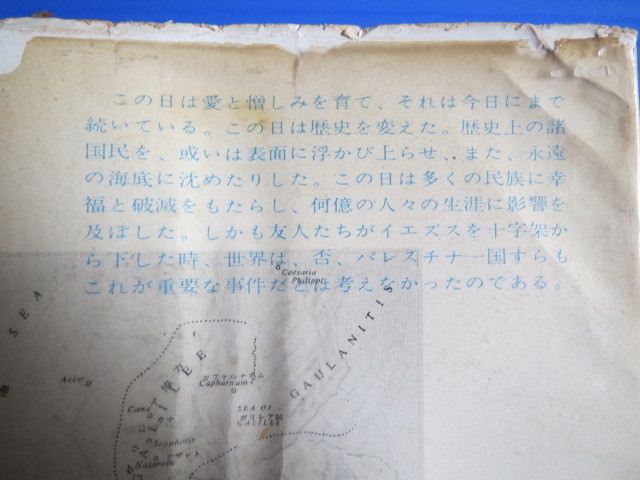 この日は愛と憎しみを育て、それは今日にまで
続いている。この日は歴史を変えた。歴史上の諸
国民を、或いは表面に浮かび上らせ、また、永遠
の海底に沈めたりした。この日は多くの民族に幸
福と破滅をもたらし、何億の人々の生涯に影響を
及ぼした。しかも友人たちがイエズスを十字架か
ら下した時、世界は、否、パレスチナ一国すらも
これが重要な事件だとは考えなかったのである。
Caesaria
Philippi
SEA
海
GAULANITIS
Acco
カファルナウム
Capharnum
Cana
SEA OF
GALILEE
Sepphoris
ナザレト
Nazareth